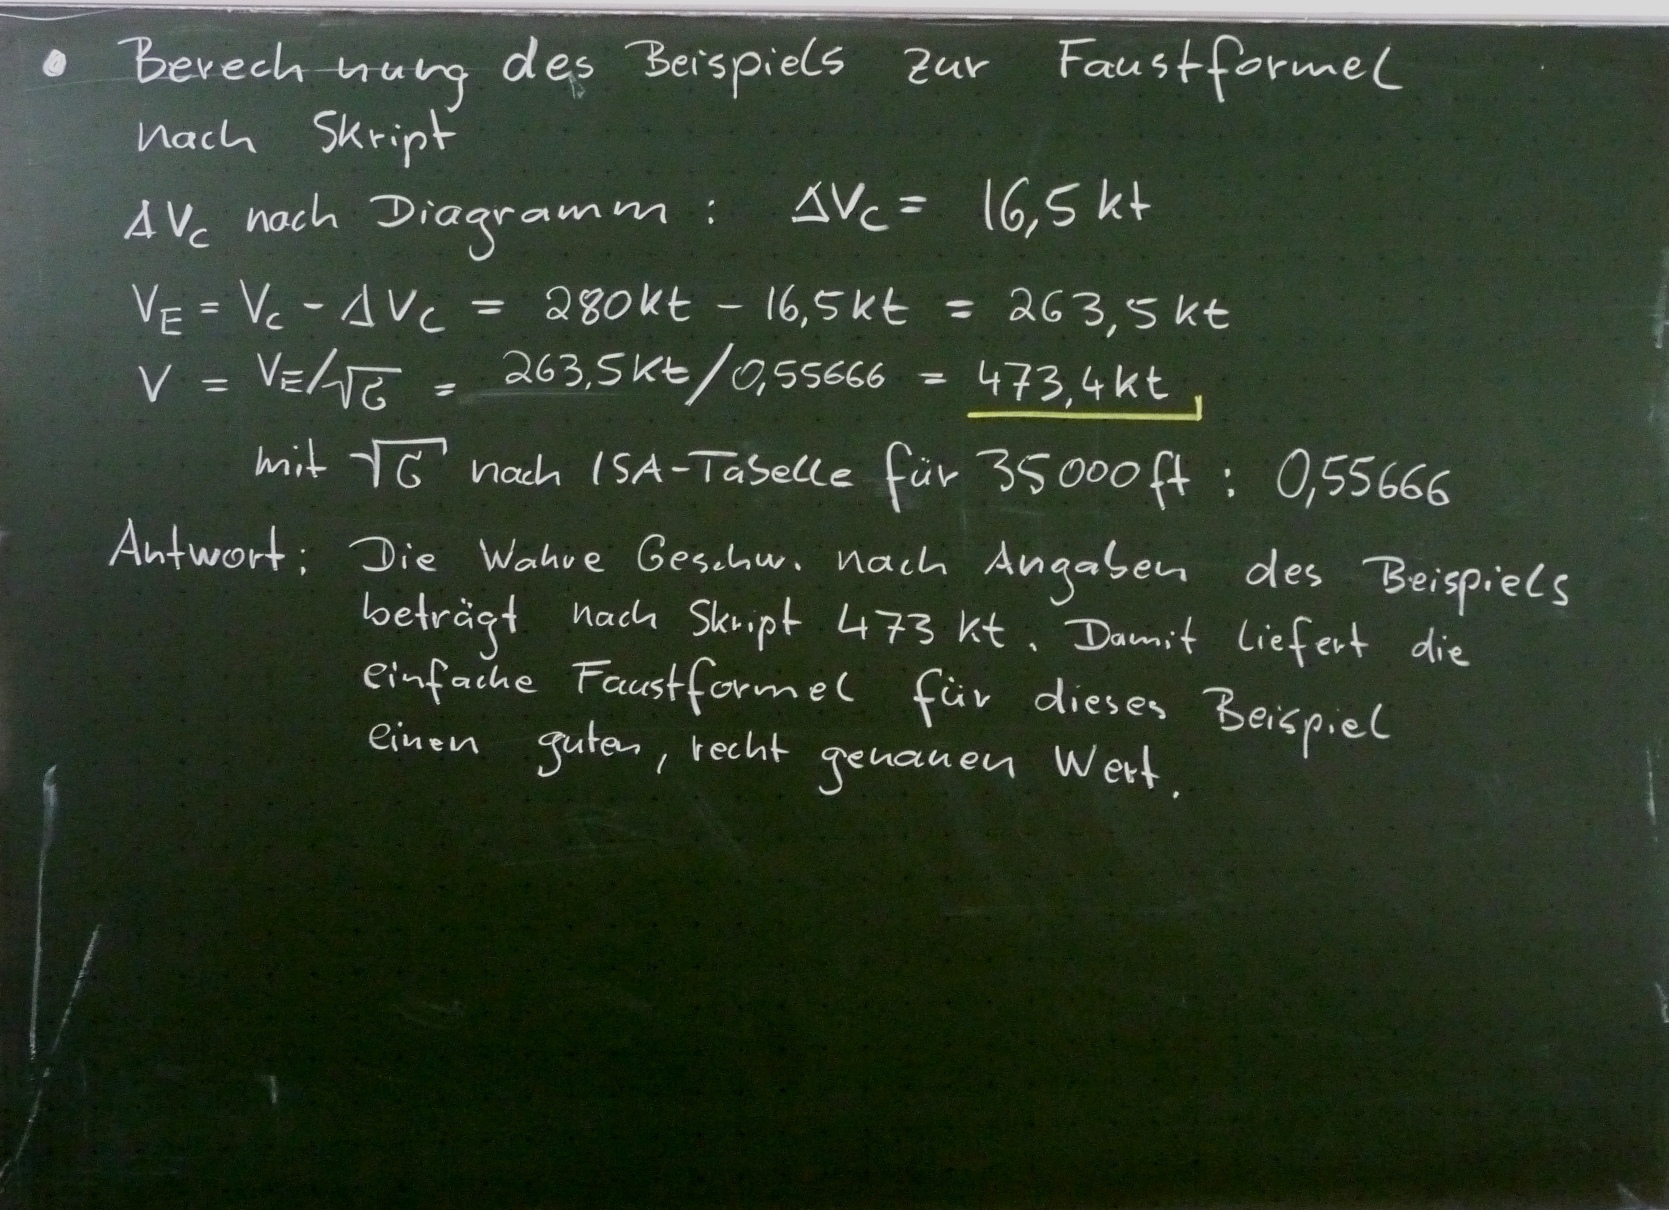 • Berechnung des Beispiels zur Faustformel
nach Skript
ΔV_C nach Diagramm : ΔV_C = 16,5 kt
V_E = V_C - ΔV_C = 280 kt - 16,5 kt = 263,5 kt
V = V_E/√σ = 263,5 kt/0,55666 = 473,4 kt
mit √σ nach ISA-Tabelle für 35000 ft : 0,55666
Antwort: Die Wahre Geschw. nach Angaben des Beispiels
beträgt nach Skript 473 kt. Damit liefert die
einfache Faustformel für dieses Beispiel
einen guten, recht genauen Wert.